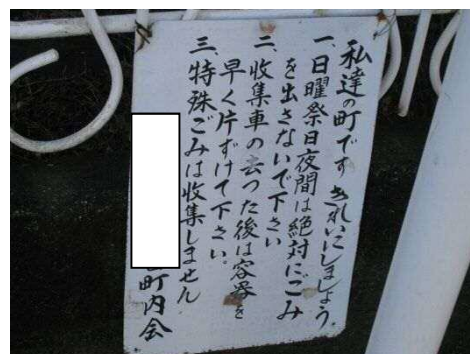 私達の町です きれいにしましょう。
一、日曜祭日夜間は絶対にごみ
を出さないで下さい
二、収集車の去った後は容器を
早く片ずけて下さい。
三、特殊ごみは収集しません
町内会